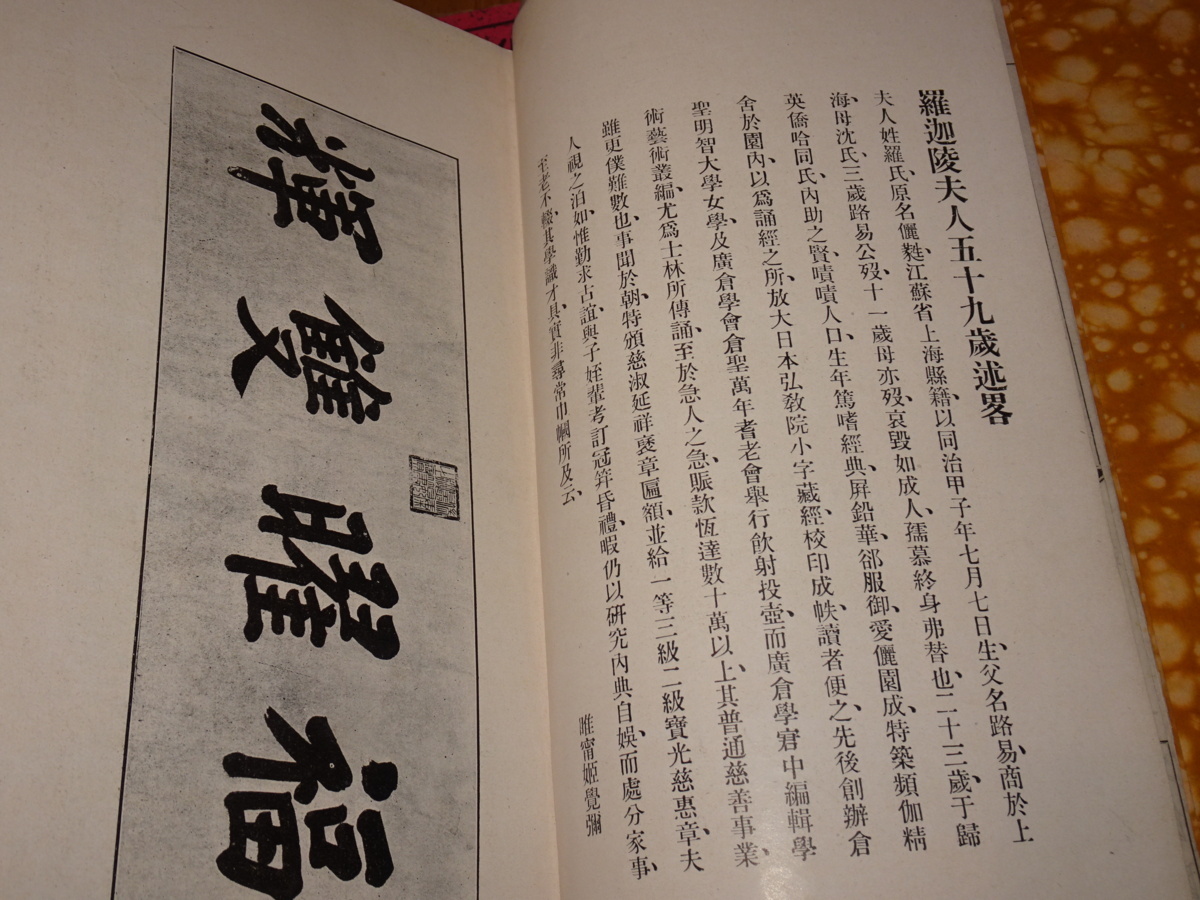 羅迦陵夫人五十九歲述畧
夫人姓羅氏原名儷蕤、江蘇省上海縣籍、以同治甲子年七月七日生、父名路易、商於上
海、母沈氏、三歲路易公歿、十一歲母亦歿、哀毀如成人、孺慕終身弗替也、二十三歲、于歸
英僑哈同氏、內助之賢、嘖嘖人口、生年篤嗜經典、屏鉛華、郤服御、愛儷園成、特築頻伽精
舍於園內、以為誦經之所、放大日本弘敎院小字藏經、校印成帙、讀者便之、先後創辦倉
聖明智大學女學、及廣倉學會倉聖萬年耆老會舉行飮射投壺、而廣倉學宭中編輯學
術藝術叢編、尤為士林所傳誦、至於急人之急、賑款恆達數十萬以上、其普通慈善事業、
雖更僕難數也、事聞於朝、特頒慈淑延祥褒章匾額、並給一等三級二級寶光慈惠章、夫
人視之泊如、惟勤求古誼、與子姪輩考訂冠笄昏禮、暇仍以硏究內典自娛、而處分家事、
至老不輟、其學識才具、實非尋常巾幗所及云、
睢甯姬覺彌
福
曜
雙
輝